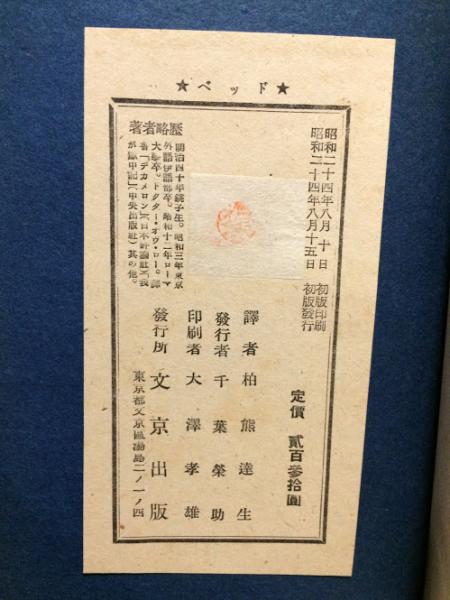 ★ドッベ★
昭和二十四年八月十日 初版印刷
昭和二十四年八月十五日 初版發行
定價 貳百參拾圓
譯者 柏熊達生
發行者 千葉榮助
印刷者 大澤孝雄
發行所 文京出版
東京都文京區湯島二ノ一ノ四
著者略歷
明治四十年銚子生。昭和三年東京
外語伊語部卒。昭和十二年ローマ
大學卒。ドクター・オヴ・ロー。譯
書「デカメロン」(日本評論社)「我
が獄中記」(中央出版社)其の他。